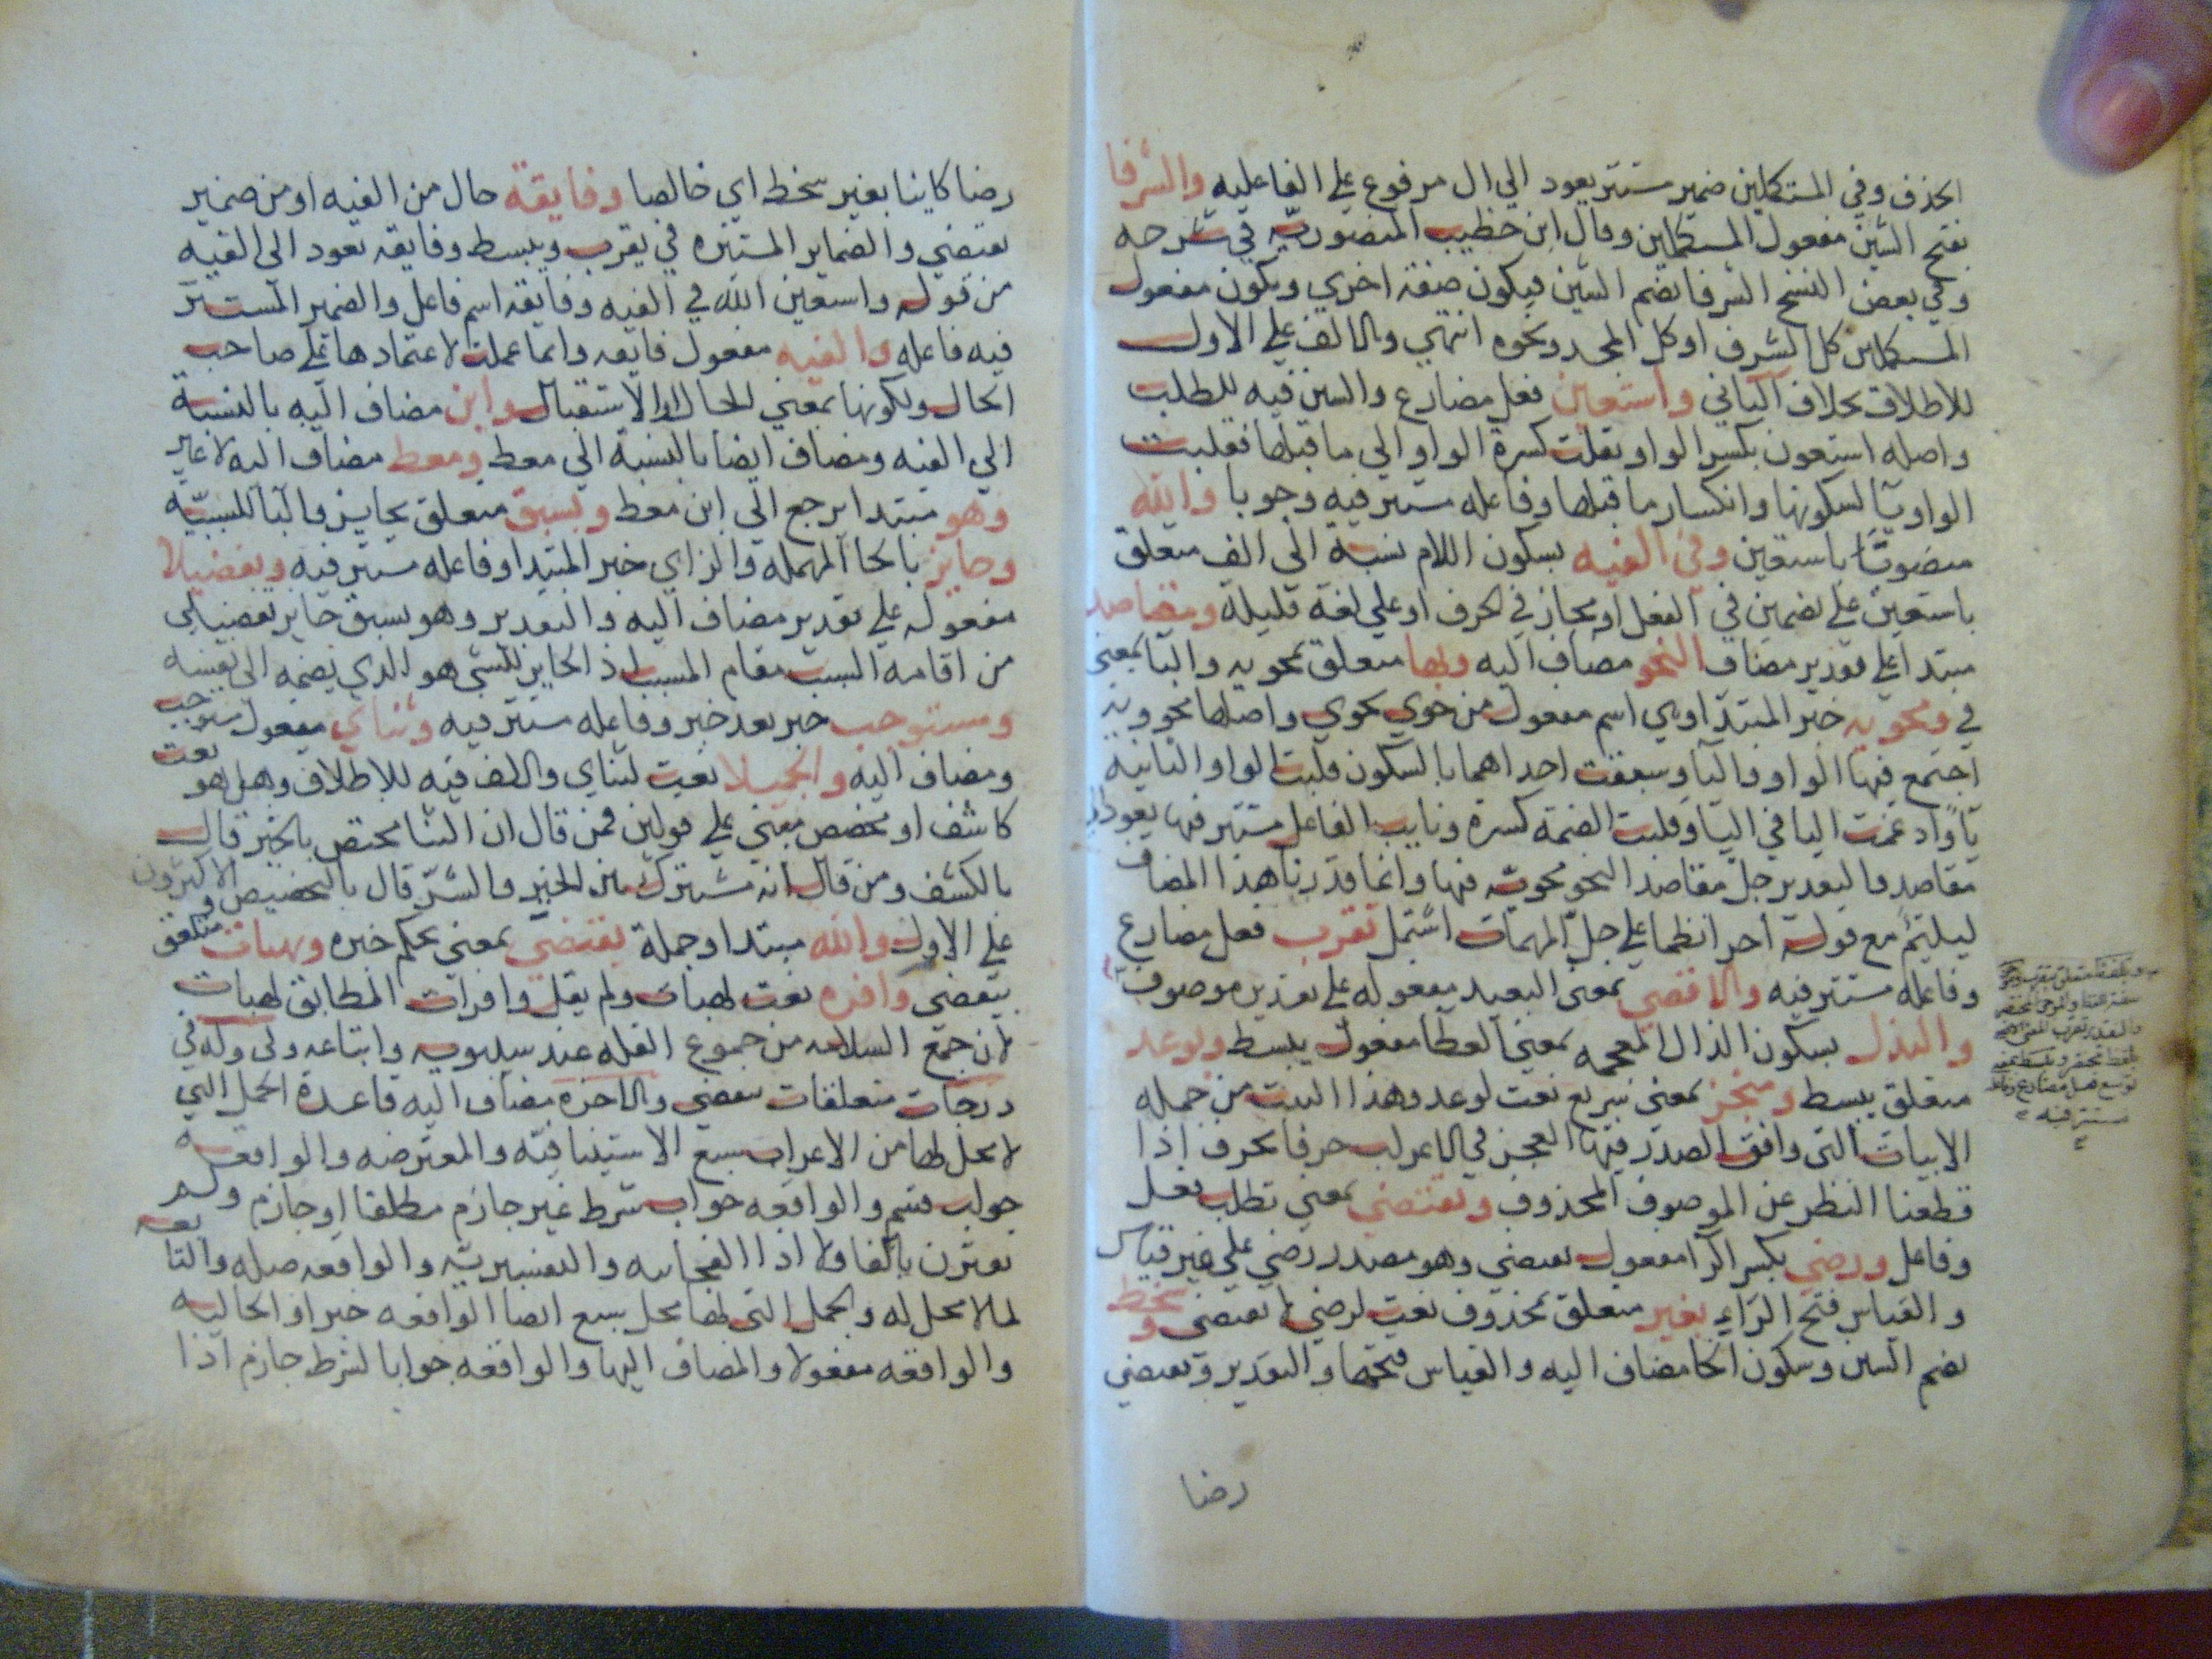 الحذف وفي المستكملين ضمير مستتر يعود الي ال مرفوع علي الفاعليه والشرفا
بفتح الشين مفعول المستكملين وقال ابن خطيب المنصوريه في شرحه
وفي بعض النسخ الشرفا بضم الشين فيكون صفة اخري ويكون مفعول
المستكملين كل الشرف او كل المجد ونحوه انتهي والالف علي الاول
للاطلاق بخلاف الثاني واستعين فعل مضارع والسين فيه للطلب
واصله استعون بكسر الواو نقلت كسرة الواو الي ما قبلها فقلبت
الواو يآ لسكونها وانكسار ما قبلها وفاعله مستتر فيه وجوبا والله
منصوبًا باستعين وفي الفيه بسكون اللام نسبة الي الف متعلق
باستعين علي تضمين في الفعل او مجاز في الحرف او علي لغة قليلة ومقاصد
مبتدا علي تقدير مضاف النحو مضاف اليه وبها متعلق بمحويه والبا بمعنى
في ومحويه خبر المبتدا وهي اسم مفعول من حوي يحوي واصلها محوويه
اجتمع فيها الواو واليآ وسبقت احداهما بالسكون قلبت الواو الثانية
يآ وادغمت اليا في اليآ وقلبت الضمة كسرة ونايب الفاعل مستتر فيها يعود الي
مقاصد والتقدير جل مقاصد النحو محويه فيها وانما قدرنا هذا المضاف
ليلتئم مع قوله اخرا نظما علي جل المهمات اشتمل تقرب فعل مضارع
وفاعله مستتر فيه والاقصي بمعنى البعيد مفعوله علي تقدير موصوف
والبذل بسكون الذال المعجمه بمعنى العطا مفعول يبسط وبوعد
متعلق ببسط ومنجز بمعنى سريع نعت لوعد وهذا البيت من جمله
الابيات التى وافق الصدر فيها العجز في الاعراب حرفا بحرف اذا
قطعنا النظر عن الموصوف المحذوف وتقتضي بمعنى تطلب فعل
وفاعل ورضي بكسر الرآ مفعول تقتضي وهو مصدر رضي علي غير قياس
والقياس فتح الرآء بغير متعلق بمحذوف نعت لرضي لا تقتضي وسخط
بضم السين وسكون الخا مضاف اليه والقياس فتحها والتقدير وتقتضي
رضا
رضا كاينا بغير سخط اي خالصا وفايقة حال من الفيه او من ضمير
تقتضي والضماير المستتره في تقرب وتبسط وفايقه تعود الي الفيه
من قوله واستعين الله في الفيه وفايقه اسم فاعل والضمير المستتر
فيه فاعله والفيه مفعول فايقه وانما عملت لاعتمادها علي صاحب
الحال ولكونها بمعني الحال او الاستقبال وابن مضاف اليه بالنسبة
الي الفيه ومضاف ايضا بالنسبة الي معط ومعط مضاف اليه لا غير
وهو مبتدا يرجع الي ابن معط وبسبق متعلق بحايز والبآ للسببيه
وحايز بالحا المهمله والزاي خبر المبتدا وفاعله مستتر فيه وتفضيلا
مفعوله علي تقدير مضاف اليه والتقدير وهو بسبق حايز تفضيلي
من اقامة السبب مقام المسبب اذ الحايز للشي هو الذي يضمه الي نفسه
ومستوجب خبر بعد خبر وفاعله مستتر فيه وثناي مفعول مستوجب
ومضاف اليه والجميلا نعت لثناي والالف فيه للاطلاق وهل هو نعت
كاشف او مخصص مبني علي قولين فمن قال ان الثنا مختص بالخير قال
بالكشف ومن قال انه مشترك بين الخير والشر قال بالتخصيص والاكثرون
علي الاول والله مبتدا وجملة يقتضي بمعنى يحكم خبره وبهبات متعلق
بيقضي وافره نعت لهبات ولم يقل وافرات المطابق لهبات
لان جمع السلامه من جموع القله عند سيبويه واتباعه ولى وله في
درجات متعلقات بيقضي والاخرة مضاف اليه قاعدة الجمل التي
لا محل لها من الاعراب سبع الاستينافيّه والمعترضه والواقعه
جواب قسم والواقعه جواب شرط غير جازم مطلقا او جازم ولم
تقترن بالفا ولا اذا الفجائيه والتفسيريّه والواقعه صله والتابعه
لما لا محل له والجمل التى لها محل سبع ايضا الواقعه خبرا والحاليه
والواقعه مفعولا والمضاف اليها والواقعه جوابا لشرط جازم اذا